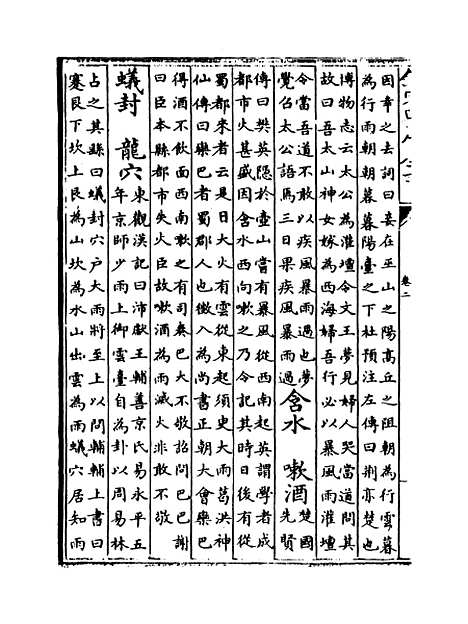 因幸之去詞曰妾在巫山之陽高丘之阻朝為行雲暮
為行雨朝朝暮暮陽臺之下杜預注左傳曰荆亦楚也
博物志云太公為灌壇令文王夢見婦人哭當道問其
故曰吾太山神女嫁為西海婦吾行必以暴風雨灌壇
令當吾道不敢以疾風暴雨過也夢
覺召太公語焉三日果疾風暴雨過 含水 噀酒 楚國
先賢
傳曰樊英隠於壺山嘗有暴風從西南起英謂學者成
都市火甚盛因含水西向噀之乃令記其時日後有從
蜀都來者云是日大火有雲從東起須史大雨葛洪神
仙傳曰欒巴者蜀郡人也徵入為尚書正朝大會欒巴
得酒不飲面西南噀之有司奏巴大不敬詔問巴巴謝
曰臣本縣都市失火臣故噀酒為雨滅火非敢不敬
蟻封 龍穴 東觀漢記曰沛獻王輔善京氏易永平五
年京師少雨上御雲臺自為卦以周易林
占之其繇曰蟻封穴戶大雨將至上以問輔輔上書曰
蹇艮下坎上艮為山坎為水山出雲為雨蟻穴居知雨
卷二